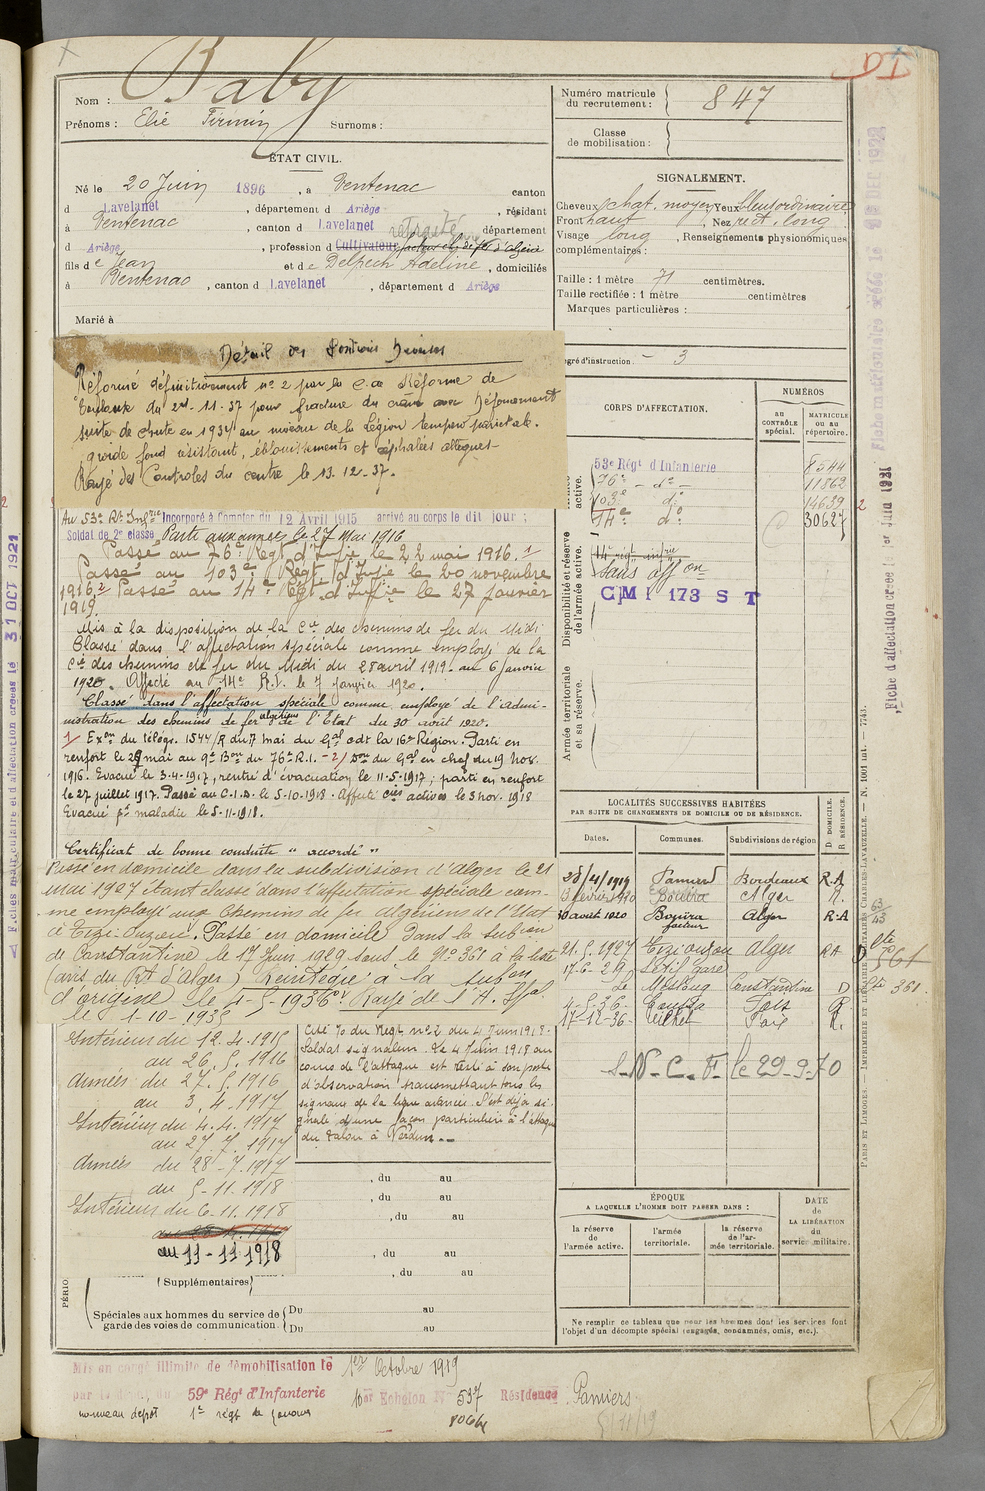 Baby
Nom :
Prénoms : Elie Firmin Surnoms :
ÉTAT CIVIL.
Né le 20 Juin 1896, à Ventenac canton
d Lavelanet, département d Ariège, résidant
à Ventenac, canton d Lavelanet département
d Ariège, profession d Cultivateur retraité
fils de Jean et de Delpech Adeline, domiciliés
à Ventenac, canton d Lavelanet, département d Ariège
Marié à
Numéro matricule du recrutement : 847
Classe de mobilisation :
SIGNALEMENT.
Cheveux chat. moyen Yeux bleus ordinaire
Front haut, Nez rect. long
Visage long, Renseignements physionomiques
complémentaires :
Taille : 1 mètre 71 centimètres.
Taille rectifiée : 1 mètre centimètres
Marques particulières :
gré d'instruction. - 3
Détail des Positions Diverses
Réformé définitivement n° 2 par la C. de Réforme de
Toulouse du 2-11-37 pour fracture du crâne avec
suite de chute en 1934 au niveau de la Région temporo pariétale.
grade fond résistant, éblouissements et céphalées
Rayé des Contrôles du centre le 13.12-37.
Au 53e Rt Infrie Incorporé à Compter du 12 Avril 1915 arrivé au corps le dit jour ;
Soldat de 2e classe Parti aux armées le 27 Mai 1916
Passé au 76e Regt d'Infie le 22 mai 1916. 1/
Passé au 103e Régt d'Infie le 20 novembre
1916. 2/ Passé au 14e Régt d'Infie le 27 Janvier
1919.
Mis à la disposition de la Cie des chemins de fer du Midi
Classé dans l'affectation spéciale comme employé de la
Cie des chemins de fer du Midi du 28 avril 1919. au 6 Janvier
1920. Affecté au 14e R.I. le 7 Janvier 1920.
Classé dans l'affectation spéciale comme employé de l'Admi-
nistration des chemins de fer algériens de l'État du 30 août 1920.
1/ Exon du télégr. 1544/R du 7 mai du Gal cdt la 16e Région. Parti en
renfort le 29 mai au 9e Bon du 76e R.I. - 2/ Don du Gal en chef du 19 Nov.
1916. Evacué le 3-4-1917, rentré d'évacuation le 11-5-1917; parti en renfort
le 27 juillet 1917. Passé au C.I.D. le 5-10-1918. Affecté Cies actives le 3 nov. 1918
Evacué pr maladie le 5-11-1918.
Certificat de bonne conduite "accordé"
Passé en domicile dans la subdivision d'Alger le 21
mai 1927 étant classé dans l'affectation spéciale com-
me employé aux Chemins de fer Algériens de l'Etat
à Tizi-Ouzou. Passé en domicile dans la subon
de Constantine le 17 Juin 1929 sous le N° 361 à la liste
(avis du Rt d'Alger) Réintégré à la subon
d'origine le 4-5-1936 Rayé de l'A. Spl.
le 1-10-1935
Intérieur du 12.4.1915
au 26.5.1916
Armées du 27.5.1916
au 3.4.1917
Intérieur du 4.4.1917
au 27.7.1917
Armées du 28-7-1917
au 5-11.1918
Intérieur du 6-11.1918
au 11-11 1918
Cité % du Régt n° 2 du 4 Juin 1918.
Soldat signaleur. Le 4 Juin 1918 au
cours de l'attaque est resté à son poste
d'observation transmettant tous les
signaux de la ligne avancée. S'est déjà si-
gnalé d'une façon particulière à l'attaque
du Talou à Verdun.
, du au
, du au
, du au
, du au
, du au
PÉRIO
(Supplémentaires)
Spéciales aux hommes du service de garde des voies de communication.
Du au
Du au
CORPS D'AFFECTATION.
NUMÉROS
AU CONTRÔLE spécial.
MATRICULE OU AU répertoire.
active.
53e Régt d'Infanterie 8544
76e - do - 11862
103e do 14639 2
14e do 30627
Disponibilité et réserve de l'armée active.
14e regt infrie
Sans affon
CMI 173 S T
Armée territoriale et sa réserve.
LOCALITÉS SUCCESSIVES HABITÉES
PAR SUITE DE CHANGEMENTS DE DOMICILE OU DE RÉSIDENCE.
Dates. Communes. Subdivisions de région D. DOMICILE. R. RÉSIDENCE.
28/4/1919 Pamiers Bordeaux R.A
13 février 1920 Bouira Alger R.
30 août 1920 Bouira facteur Alger R.A
21.5.1927 Tizi ouzou Alger R A
17-6-29 Sétif gare
de Mesloug Constantine D
4-5-36 Foix R
17-12-36 Foix R.
S.N.C.F. le 29-9-70
63/43
lte 561
361.
ÉPOQUE
A LAQUELLE L'HOMME DOIT PASSER DANS :
la réserve de l'armée active.
l'armée territoriale.
la réserve de l'armée territoriale.
DATE de LA LIBÉRATION du service militaire.
Ne remplir ce tableau que pour les hommes dont les services font
l'objet d'un décompte spécial (engagés, condamnés, omis, etc.).
Mis en congé illimité de démobilisation le 1er Octobre 1919
par le dépôt du 59e Régt d'Infanterie 10er Echelon N° 537 Résidence Pamiers
nouveau dépôt 1e régt de zouaves
Fiche d'affectation créée le 1er Juin 1931
Fiche matriculaire créée le DEC 1932
Fiches matriculaire et d'affectation créées le 31 OCT 1921
PARIS ET LIMOGES. — IMPRIMERIE ET LIBRAIRIE MILITAIRES CHARLES-LAVAUZELLE. — N. 1001 int. — 7743.